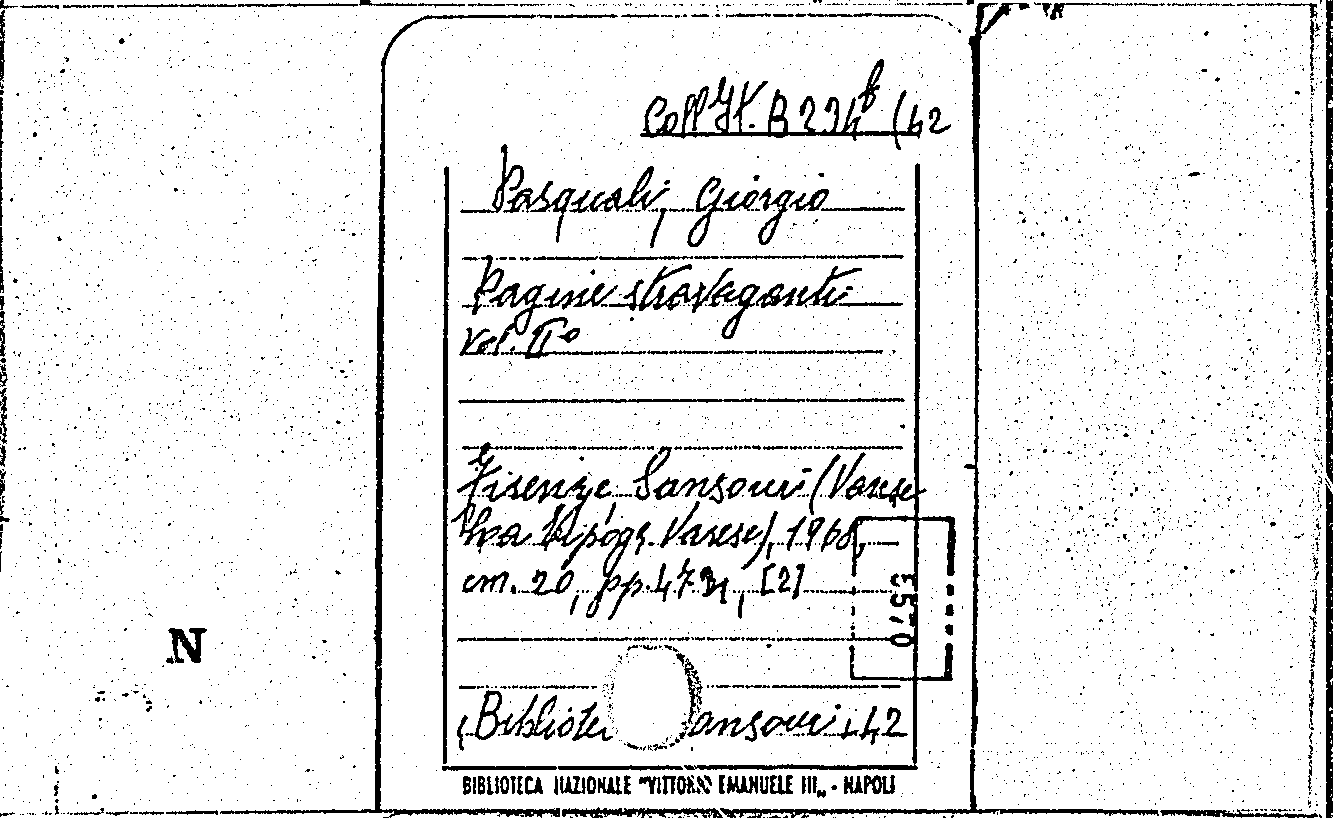 Coll. It. B 234 b (42
Pasquali, Giorgio
Pagine stravaganti
Vol. II°
Firenze, Sansoni (Varese
Tipogr. Varese), 1968,
cm. 20, pp. 473, [2]
N
(Bibliote ansoni, 42
BIBLIOTECA NAZIONALE "VITTORIO EMANUELE III„ - NAPOLI